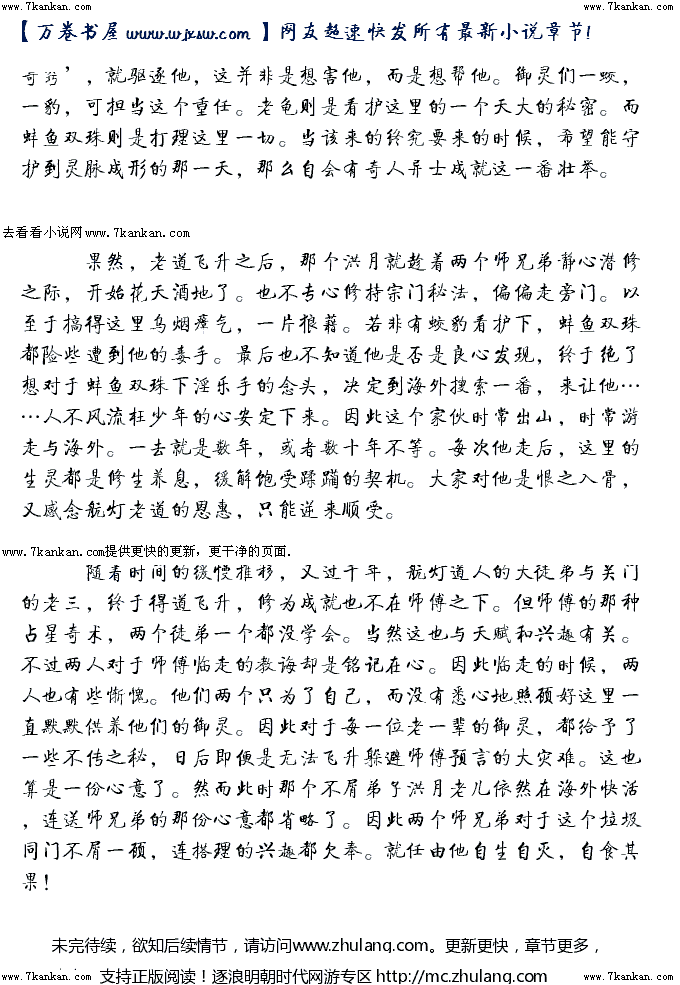 www.7kankan.com www.7kankan.com www.7kankan.com
【万卷书屋 www.wjxsw.com 】网友超速快发所有最新小说章节!
奇葩’，就驱逐他，这并非是想害他，而是想帮他。御灵们一蛟，
一豹，可担当这个重任。老龟则是看护这里的一个天大的秘密。而
蚌鱼双珠则是打理这里一切。当该来的终究要来的时候，希望能守
护到灵脉成形的那一天，那么自会有奇人异士成就这一番壮举。
去看看小说网www.7kankan.com
果然，老道飞升之后，那个洪月就趁着两个师兄弟静心潜修
之际，开始花天酒地了。也不专心修持宗门秘法，偏偏走旁门。以
至于搞得这里乌烟瘴气，一片狼藉。若非有蛟豹看护下，蚌鱼双珠
都险些遭到他的毒手。最后也不知道他是否是良心发现，终于绝了
想对于蚌鱼双珠下淫乐手的念头，决定到海外搜索一番，来让他…
…人不风流枉少年的心安定下来。因此这个家伙时常出山，时常游
走与海外。一去就是数年，或者数十年不等。每次他走后，这里的
生灵都是修生养息，缓解饱受蹂躏的契机。大家对他是恨之入骨，
又感念航灯老道的恩惠，只能逆来顺受。
www.7kankan.com提供更快的更新，更干净的页面.
随着时间的缓慢推移，又过千年，航灯道人的大徒弟与关门
的老三，终于得道飞升，修为成就也不在师傅之下。但师傅的那种
占星奇术，两个徒弟一个都没学会。当然这也与天赋和兴趣有关。
不过两人对于师傅临走的教诲却是铭记在心。因此临走的时候，两
人也有些惭愧。他们两个只为了自己，而没有悉心地照顾好这里一
直默默供养他们的御灵。因此对于每一位老一辈的御灵，都给予了
一些不传之秘，日后即便是无法飞升躲避师傅预言的大灾难。这也
算是一份心意了。然而此时那个不屑弟子洪月老儿依然在海外快活
，连送师兄弟的那份心意都省略了。因此两个师兄弟对于这个垃圾
同门不屑一顾，连搭理的兴趣都欠奉。就任由他自生自灭，自食其
果!
未完待续，欲知后续情节，请访问www.zhulang.com。更新更快，章节更多，
www.7kankan.com 支持正版阅读！逐浪明朝时代网游专区 http://mc.zhulang.com www.7kankan.com